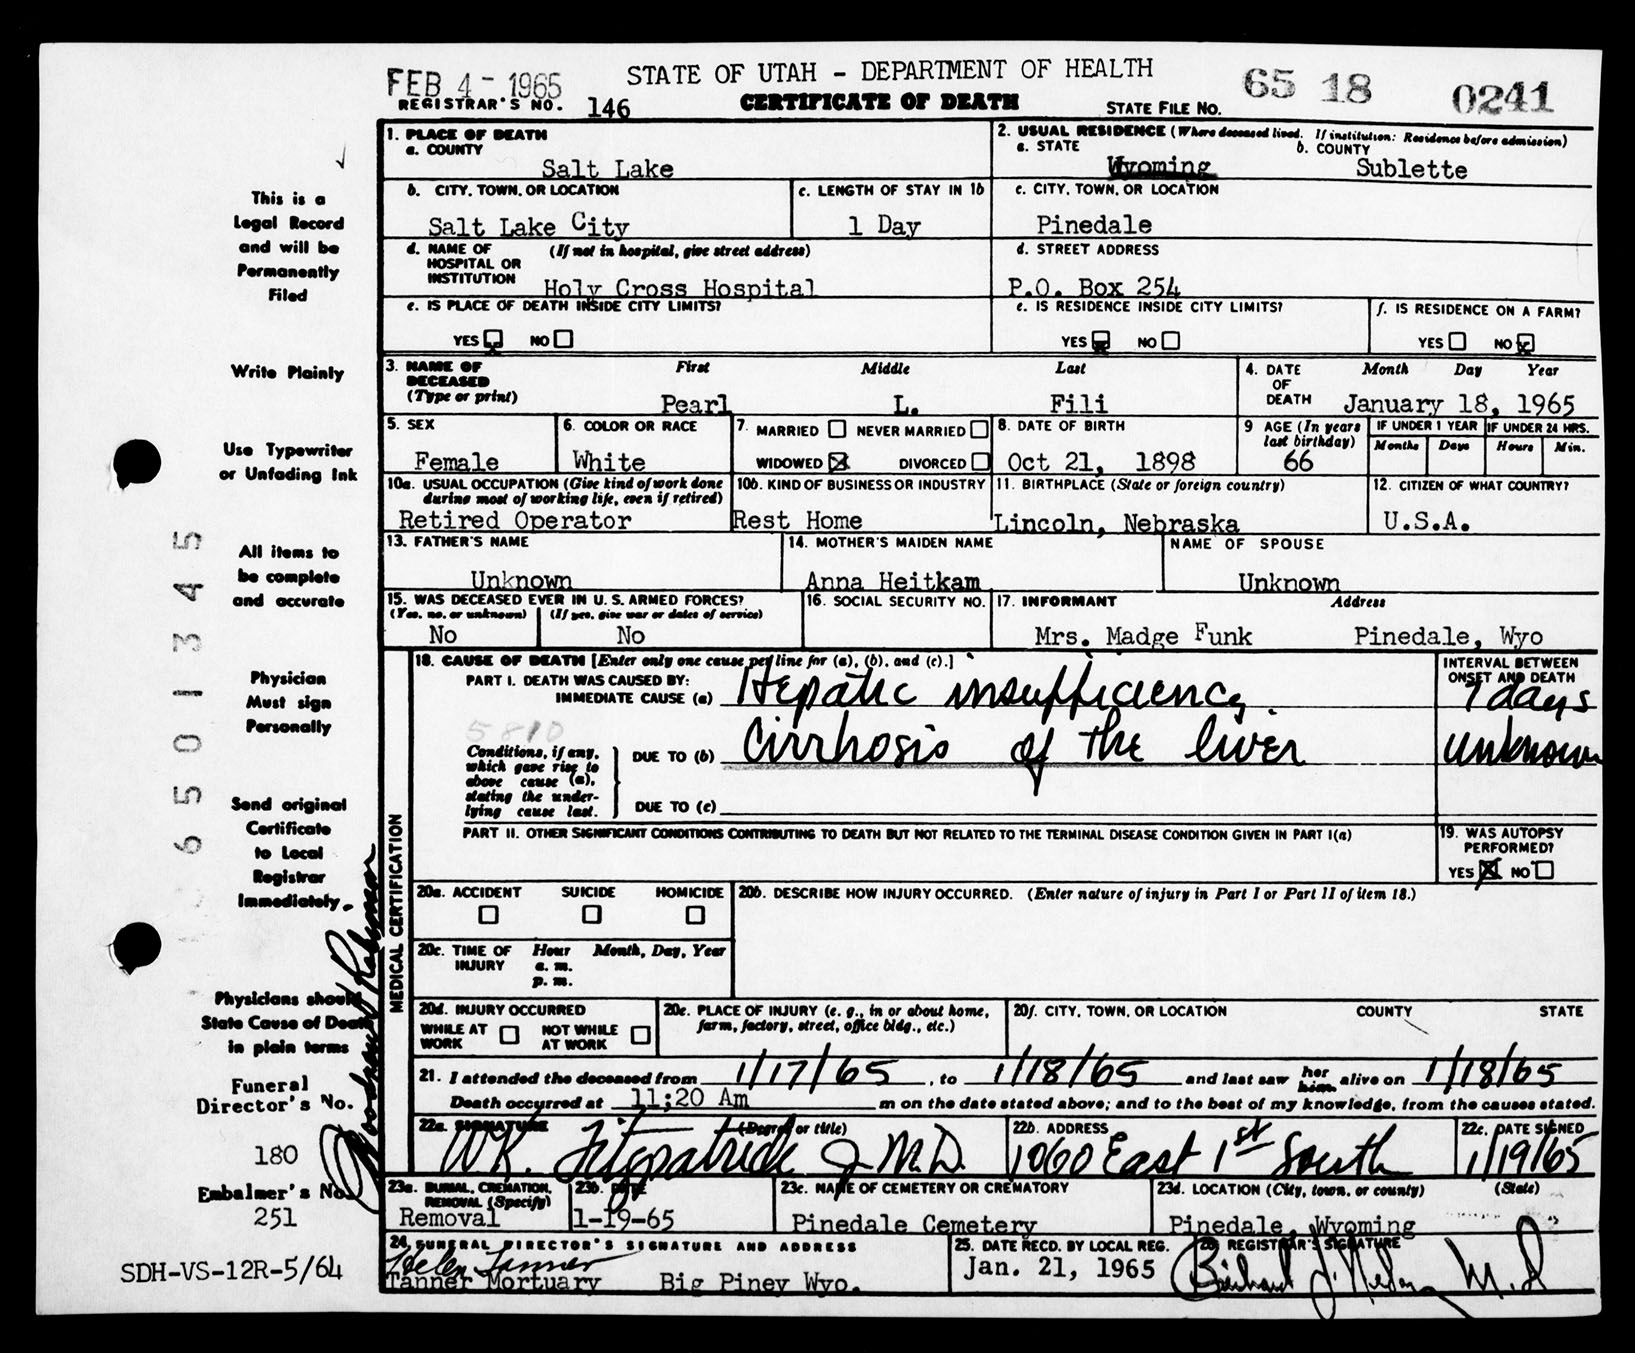 FEB 4 - 1965
STATE OF UTAH - DEPARTMENT OF HEALTH
65 18 0241
REGISTRAR'S NO. 146
CERTIFICATE OF DEATH
STATE FILE NO.
1. PLACE OF DEATH
a. COUNTY
Salt Lake
2. USUAL RESIDENCE (Where deceased lived. If institution: Residence before admission)
a. STATE
Wyoming
b. COUNTY
Sublette
b. CITY, TOWN, OR LOCATION
Salt Lake City
c. LENGTH OF STAY IN 1b
1 Day
c. CITY, TOWN, OR LOCATION
Pinedale
d. NAME OF HOSPITAL OR INSTITUTION
(If not in hospital, give street address)
Holy Cross Hospital
d. STREET ADDRESS
P.O. Box 254
e. IS PLACE OF DEATH INSIDE CITY LIMITS?
YES NO
e. IS RESIDENCE INSIDE CITY LIMITS?
YES NO
f. IS RESIDENCE ON A FARM?
YES NO
3. NAME OF DECEASED
(Type or print)
First Middle Last
Pearl L. Fili
4. DATE OF DEATH
Month Day Year
January 18, 1965
5. SEX
Female
6. COLOR OR RACE
White
7. MARRIED NEVER MARRIED
WIDOWED DIVORCED
8. DATE OF BIRTH
Oct 21, 1898
9 AGE (In years last birthday)
66
IF UNDER 1 YEAR
Months Days
IF UNDER 24 HRS.
Hours Min.
10a. USUAL OCCUPATION (Give kind of work done during most of working life, even if retired)
Retired Operator
10b. KIND OF BUSINESS OR INDUSTRY
Rest Home
11. BIRTHPLACE (State or foreign country)
Lincoln, Nebraska
12. CITIZEN OF WHAT COUNTRY?
U.S.A.
13. FATHER'S NAME
Unknown
14. MOTHER'S MAIDEN NAME
Anna Heitkam
NAME OF SPOUSE
Unknown
15. WAS DECEASED EVER IN U.S. ARMED FORCES?
(Yes, no, or unknown) (If yes, give war or dates of service)
No No
16. SOCIAL SECURITY NO.
17. INFORMANT Address
Mrs. Madge Funk Pinedale, Wyo
18. CAUSE OF DEATH [Enter only one cause per line for (a), (b), and (c).]
PART I. DEATH WAS CAUSED BY:
IMMEDIATE CAUSE (a) Hepatic insufficiency
INTERVAL BETWEEN ONSET AND DEATH
7 days
5810
Conditions, if any, which gave rise to above cause (a), stating the underlying cause last.
DUE TO (b) Cirrhosis of the liver
unknown
DUE TO (c)
PART II. OTHER SIGNIFICANT CONDITIONS CONTRIBUTING TO DEATH BUT NOT RELATED TO THE TERMINAL DISEASE CONDITION GIVEN IN PART I(a)
19. WAS AUTOPSY PERFORMED?
YES NO
MEDICAL CERTIFICATION
20a. ACCIDENT SUICIDE HOMICIDE
20b. DESCRIBE HOW INJURY OCCURRED. (Enter nature of injury in Part I or Part II of item 18.)
20c. TIME OF INJURY
Hour Month, Day, Year
a. m.
p. m.
20d. INJURY OCCURRED
WHILE AT WORK NOT WHILE AT WORK
20e. PLACE OF INJURY (e. g., in or about home, farm, factory, street, office bldg., etc.)
20f. CITY, TOWN, OR LOCATION COUNTY STATE
21. I attended the deceased from 1/17/65, to 1/18/65 and last saw her him alive on 1/18/65
Death occurred at 11;20 Am m on the date stated above; and to the best of my knowledge, from the causes stated.
22a. SIGNATURE (Degree or title)
WK. Fitzpatrick Jr M.D.
22b. ADDRESS
1060 East 1st South
22c. DATE SIGNED
1/19/65
23a. BURIAL, CREMATION, REMOVAL (Specify)
Removal
23b. DATE
1-19-65
23c. NAME OF CEMETERY OR CREMATORY
Pinedale Cemetery
23d. LOCATION (City, town, or county) (State)
Pinedale, Wyoming
24. FUNERAL DIRECTOR'S SIGNATURE AND ADDRESS
Helen Tanner
Tanner Mortuary Big Piney Wyo.
25. DATE RECD. BY LOCAL REG.
Jan. 21, 1965
26. REGISTRAR'S SIGNATURE
M.D
This is a
Legal Record
and will be
Permanently
Filed
Write Plainly
Use Typewriter
or Unfading Ink
All items to
be complete
and accurate
Physician
Must sign
Personally
Send original
Certificate
to Local
Registrar
Immediately.
Physicians should
State Cause of Death
in plain terms
Funeral
Director's No.
180
Embalmer's No.
251
SDH-VS-12R-5/64
6501345